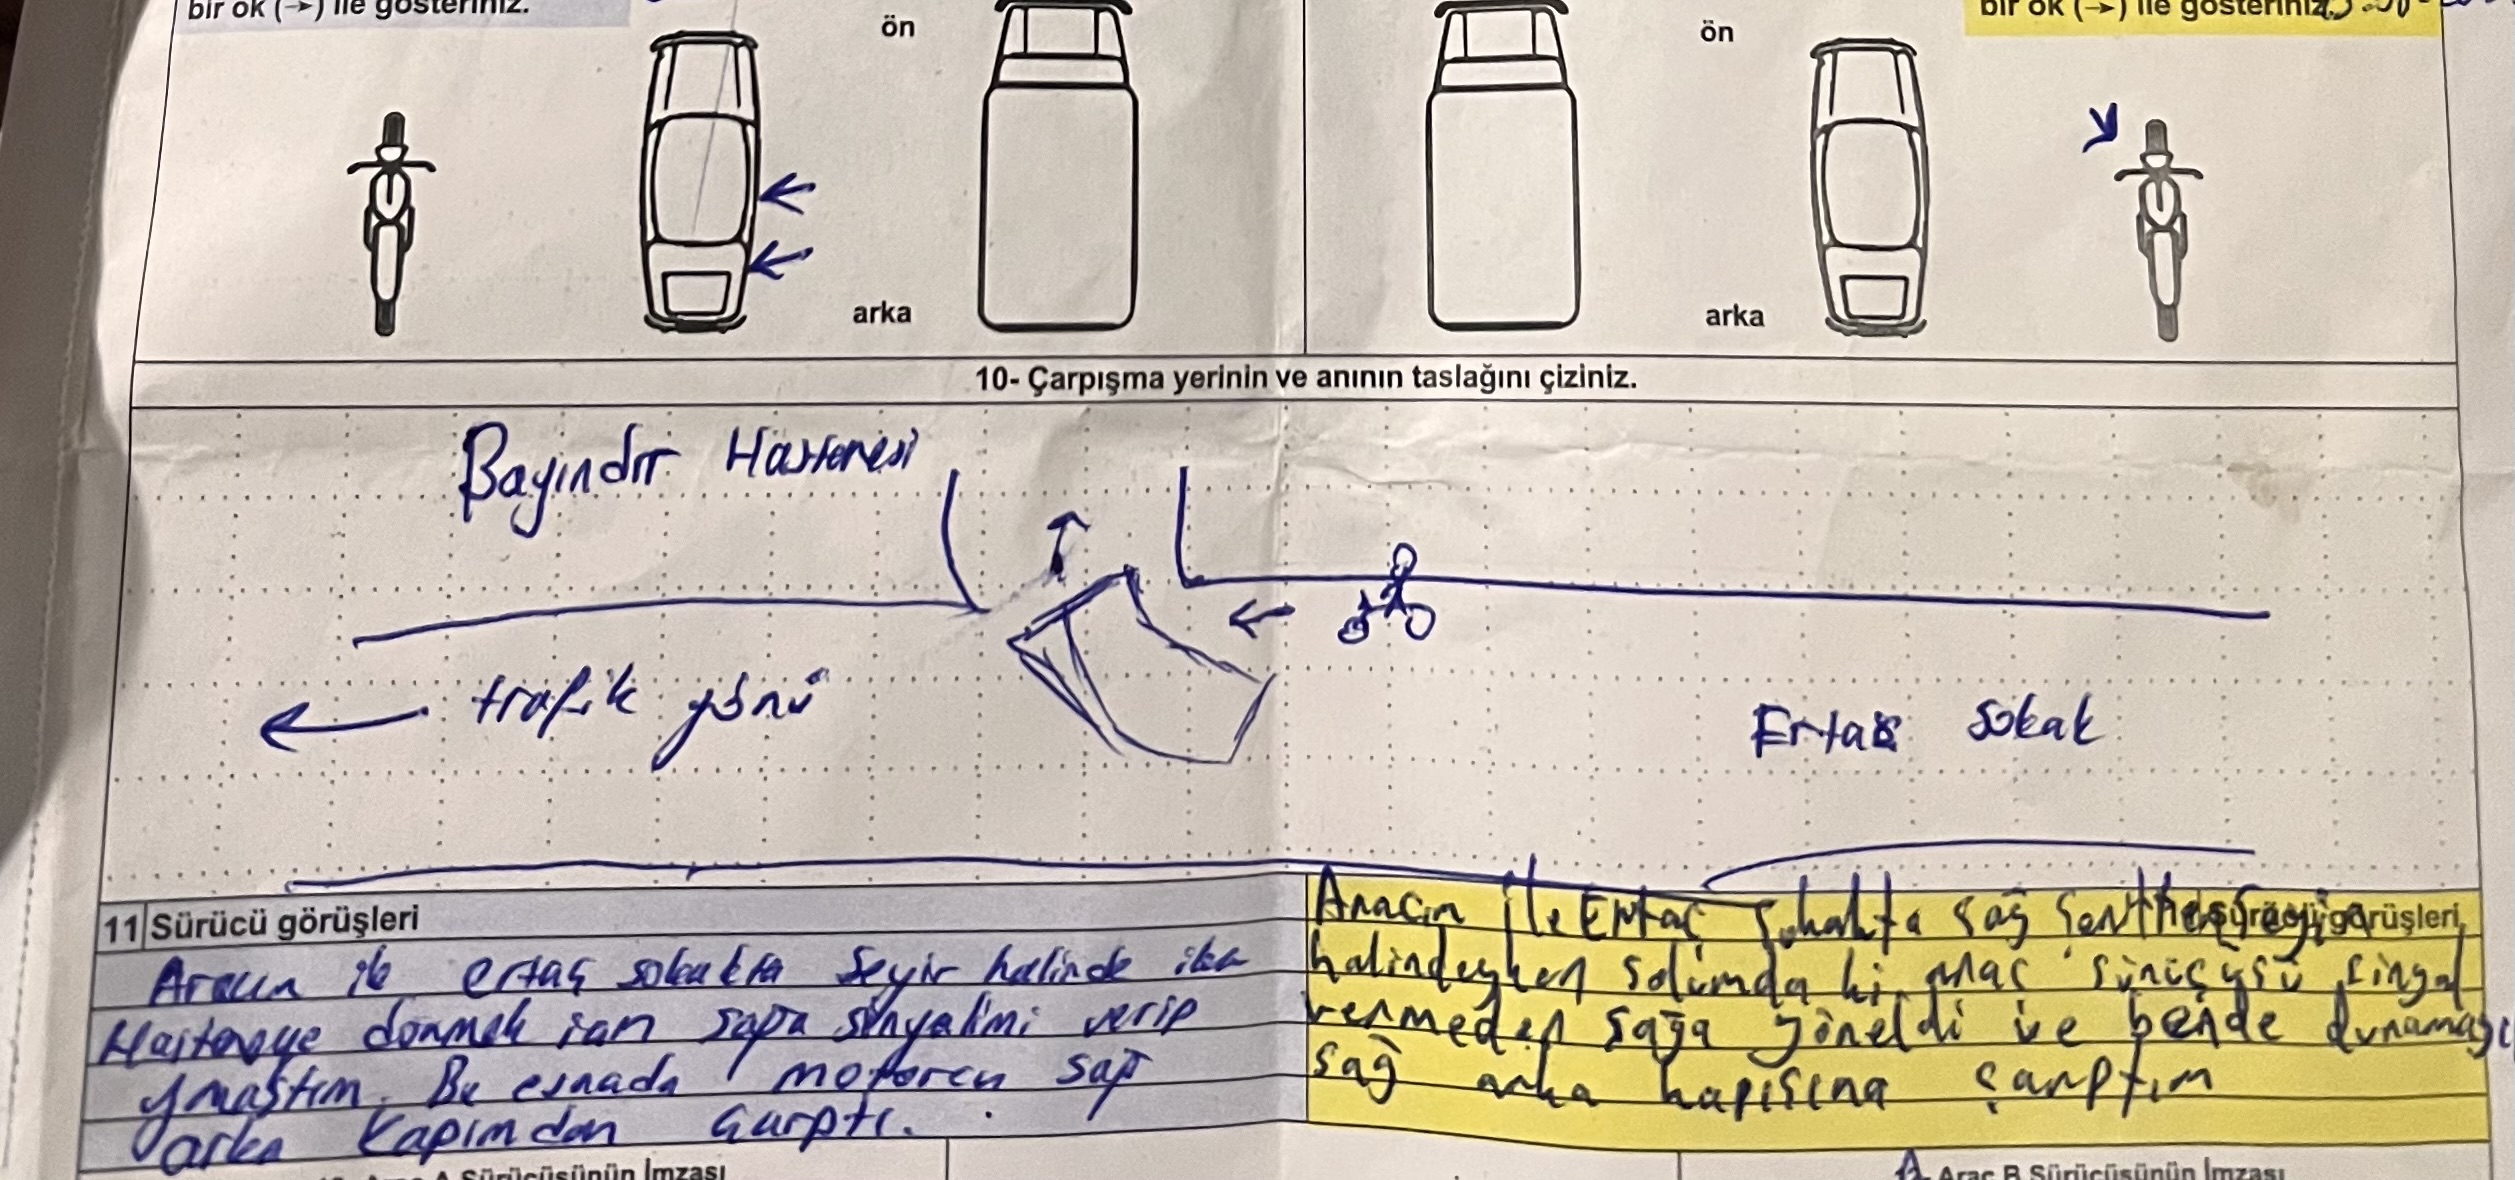 bir ok (→) ile gösteriniz.
bir ok (→) ile gösteriniz.
ön
ön
arka
arka
10- Çarpışma yerinin ve anının taslağını çiziniz.
Bayındır Hastenesi
trafik yönü
Ertaş sokak
11 Sürücü görüşleri
Aracım ile ertaş sokakta seyir halinde iken
Hasteneye dönmek için sağa sinyalimi verip
yanaştım. Bu esnada motorcu sağ
arka kapımdan çarptı.
sürücü görüşleri
Aracım ile Ertaş sokakta sağ şeritte seyir
halindeyken solumda ki araç sürücüsü sinyal
vermeden sağa yöneldi ve bende duramayıp
sağ arka kapısına çarptım
Araç A Sürücüsünün İmzası
Araç B Sürücüsünün İmzası